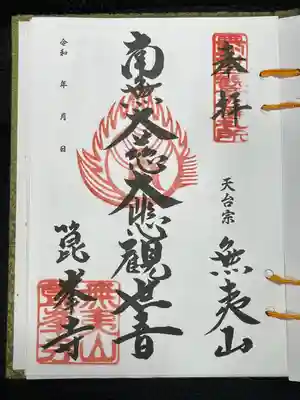 奉拝
天台宗 無夷山
南無大慈大悲觀世音
箟峯寺
令和 年 月 日
無夷山
箟峯寺